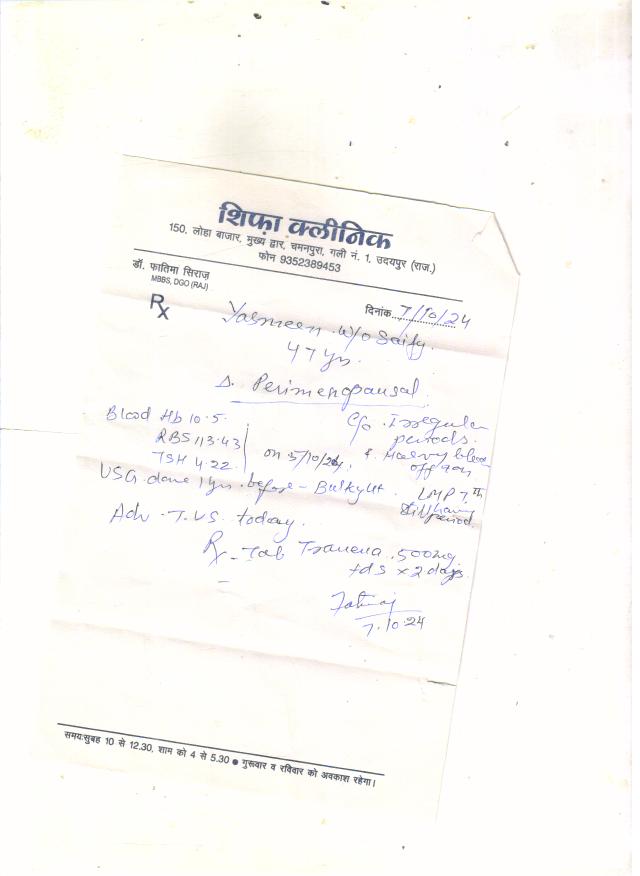 शिफ़ा क्लीनिक
150, लोहा बाजार, मुख्य द्वार, चमनपुरा, गली नं. 1, उदयपुर (राज.)
फोन 9352389453
डॉ. फातिमा सिराज़
MBBS, DGO (RAJ)
दिनांक 7/10/24
Rx
Yasmeen w/o Saify.
47 yr.
Δ. Perimenopausal
Blood Hb 10.5.
RBS 113.43
TSH 4.22.
on 5/10/24,
C/o Irregular
periods.
& Heavy blood
off & on
USG done 1 yr. before - Bulky Ut.
LMP 7th
still having
period.
Adv - T.V.S. today.
Rx - Tab Tranexa 500mg.
tds x 2 days.
7.10.24
समय:सुबह 10 से 12.30, शाम को 4 से 5.30 ● गुरूवार व रविवार को अवकाश रहेगा।